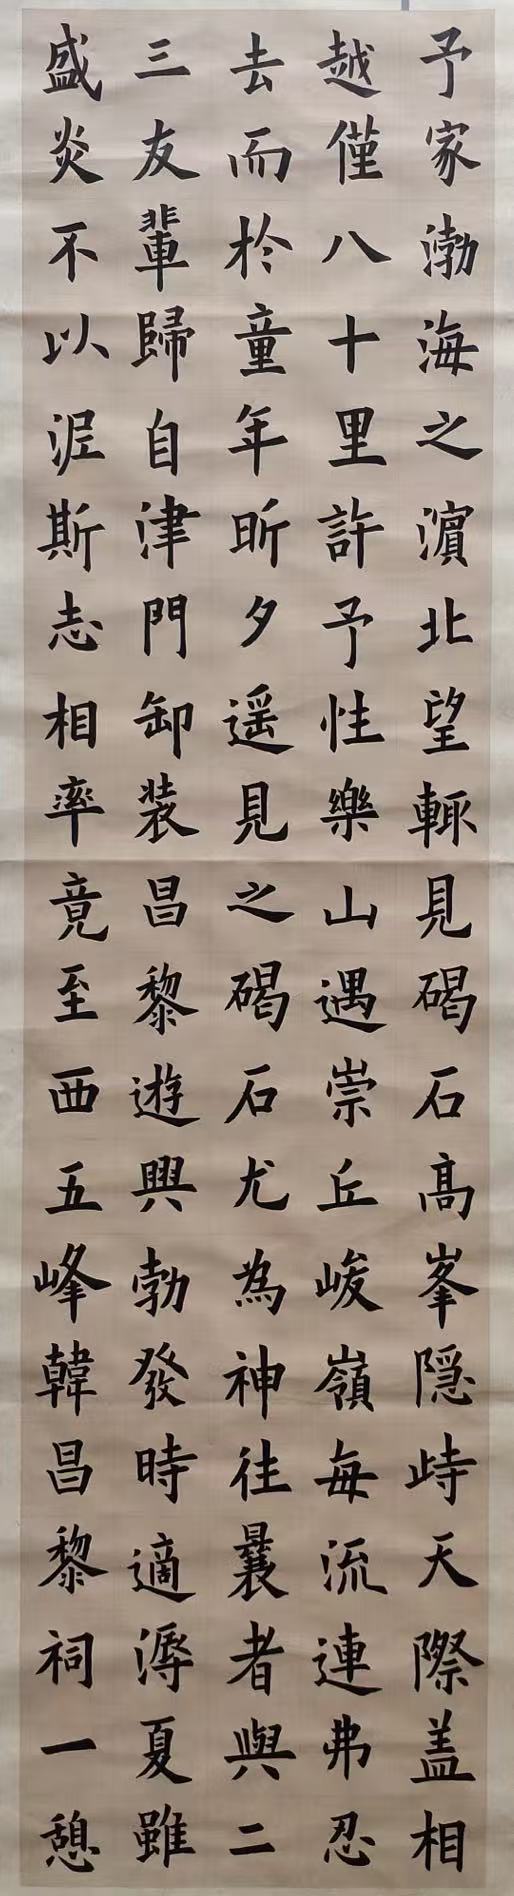 予家渤海之濵北望輙見碣石髙峯隠峙天際盖相
越僅八十里許予性樂山遇崇丘峻嶺每流連弗忍
去而於童年昕夕遥見之碣石尤為神往曩者與二
三友輩歸自津門卸装昌黎遊興勃發時適溽夏雖
盛炎不以泥斯志相率竟至西五峰韓昌黎祠一憩